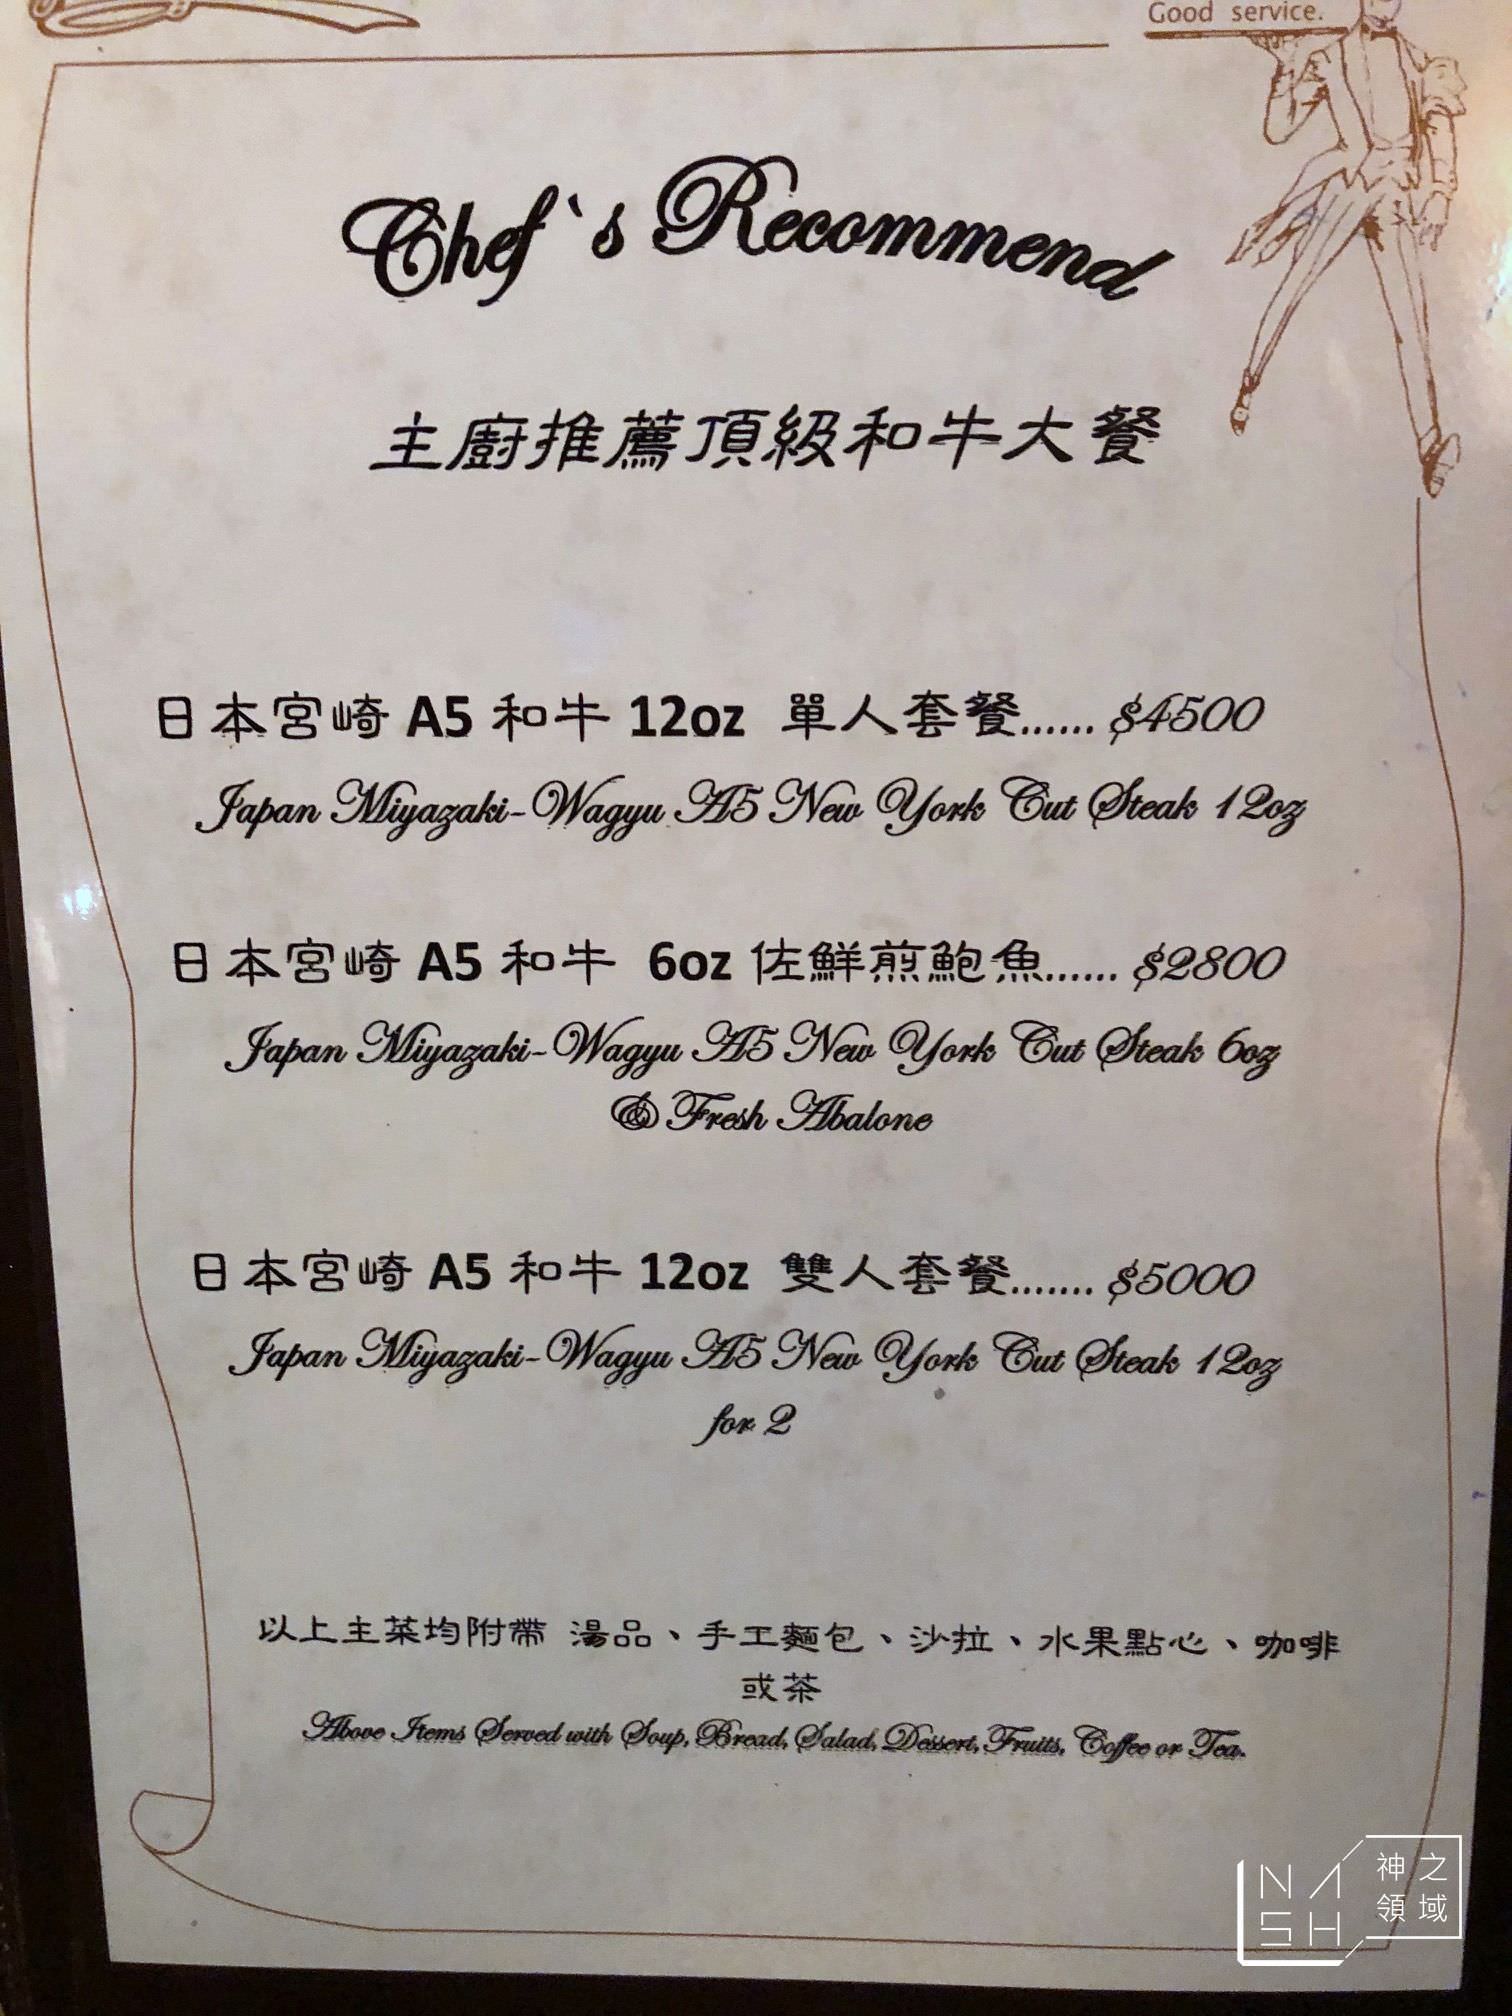 Good service.
Chef`s Recommend
主廚推薦頂級和牛大餐
日本宮崎 A5 和牛 12oz 單人套餐...... $4500
Japan Miyazaki-Wagyu A5 New York Cut Steak 12oz
日本宮崎 A5 和牛 6oz 佐鮮煎鮑魚...... $2800
Japan Miyazaki-Wagyu A5 New York Cut Steak 6oz
& Fresh Abalone
日本宮崎 A5 和牛 12oz 雙人套餐....... $5000
Japan Miyazaki-Wagyu A5 New York Cut Steak 12oz
for 2
以上主菜均附帶 湯品、手工麵包、沙拉、水果點心、咖啡
或茶
Above Items Served with Soup, Bread, Salad, Dessert, Fruits, Coffee or Tea.
NASH
神之
領域